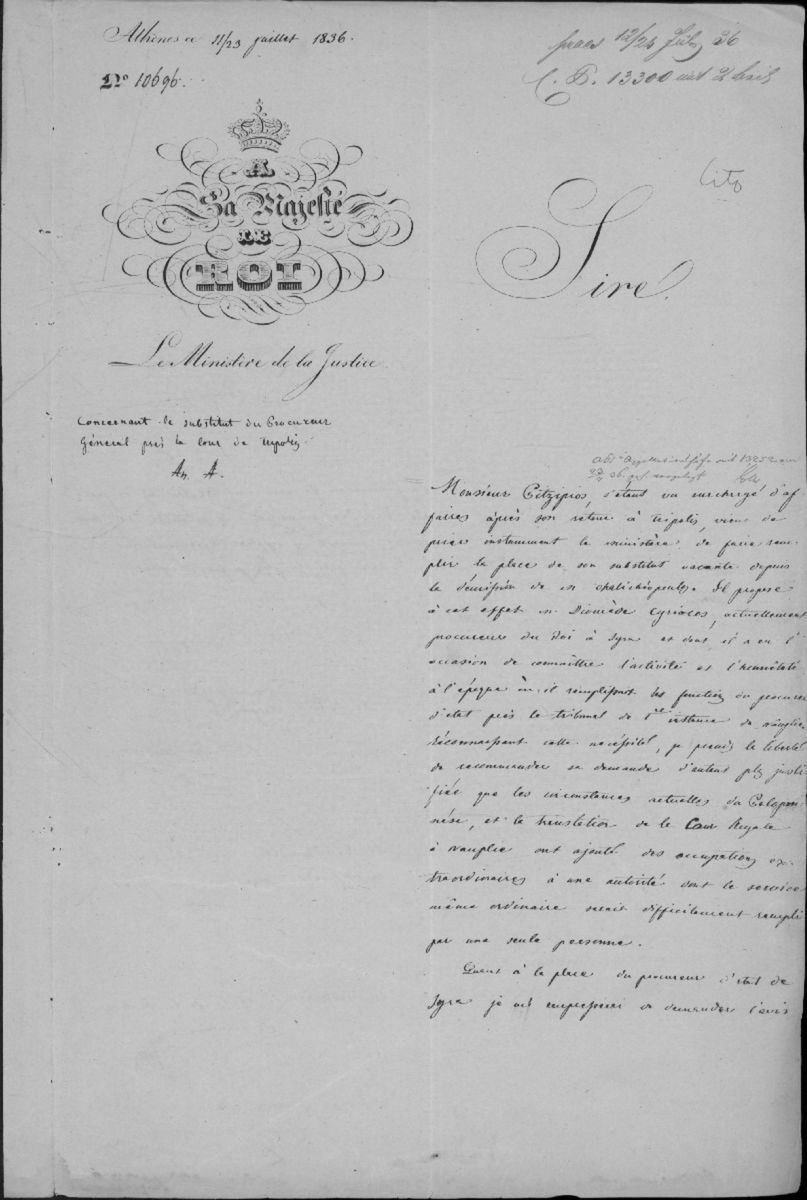 Athènes ce 11/23 juillet 1836.
No 10696.
praes 12/24 July 36
C. B. 13300 mit 2 Beil
cito
A
Sa Majesté
LE
ROI
Sire.
Le Ministère de la Justice
Concernant le substitut du Procureur
Général près la Cour de Tripolis
An. A.
Monsieur Citzipios, s'étant vu surchargé d'af-
faires après son retour à Tripolis, vient de
prier instamment le ministère de faire rem-
plir la place de son substitut vacante depuis
la démission de mr Chalichiopoulos. Il propose
à cet effet mr Diomède Cyriacos, actuellement
procureur du Roi à Syra et dont il a eu l'
occasion de connaître l'activité et l'honnêteté
à l'époque où il remplissait les fonctions du procureur
d'état près le tribunal de 1re instance de Nauplie.
Reconnaissant cette nécessité, je prends la liberté
de recommander sa demande d'autant plus justi-
fiée que les circonstances actuelles du Péloponn-
nèse, et la translation de la Cour Royale
à Nauplie ont ajouté des occupations ex-
traordinaires à une autorité dont le service
même ordinaire serait difficilement rempli
par une seule personne.
Quant à la place du procureur d'état de
Syra je m'empresserai de demander l'avis